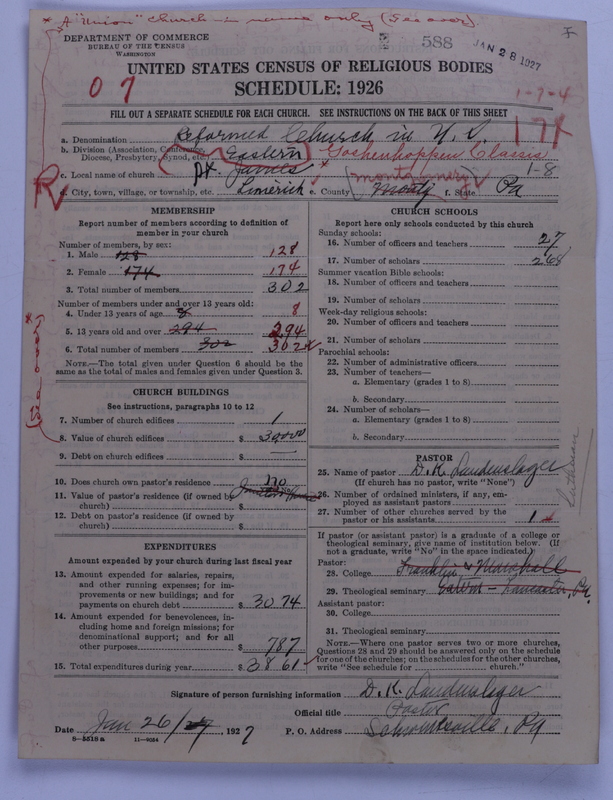 * A "Union" church - in name only (See over)
DEPARTMENT OF COMMERCE
BUREAU OF THE CENSUS
WASHINGTON
588
JAN 28 1927
UNITED STATES CENSUS OF RELIGIOUS BODIES
SCHEDULE: 1926
0 7
1-7-4
FILL OUT A SEPARATE SCHEDULE FOR EACH CHURCH. SEE INSTRUCTIONS ON THE BACK OF THIS SHEET
a. Denomination Reformed Church in U. S.
b. Division (Association, Conference, Diocese, Presbytery, Synod, etc. Eastern Goshenhoppen Classis
c. Local name of church St. James * 1-8
d. City, town, village, or township, etc. Limerick e. County Montg Montgomery f. State Pa
MEMBERSHIP
Report number of members according to definition of
member in your church
Number of members, by sex:
1. Male 128 128
2. Female 174 174
3. Total number of members 302
Number of members under and over 13 years old:
4. Under 13 years of age 8 8
5. 13 years old and over 294 294
6. Total number of members 302 302
NOTE.—The total given under Question 6 should be
same as the total of males and females given under Question 3.
(See over) *
CHURCH BUILDINGS
See instructions, paragraphs 10 to 12
7. Number of church edifices 1
8. Value of church edifices $ 30000
9. Debt on church edifices $ —
10. Does church own pastor's residence? no
11. Value of pastor's residence (if owned by
church) $
12. Debt on pastor's residence (if owned by
church) $
EXPENDITURES
Amount expended by your church during last fiscal year
13. Amount expended for salaries, repairs,
and other running expenses; for im-
provements or new buildings; and for
payments on church debt $ 3074
14. Amount expended for benevolences, in-
cluding home and foreign missions; for
denominational support; and for all
other purposes $ 787
15. Total expenditures during year $ 3861
CHURCH SCHOOLS
Report here only schools conducted by this church
Sunday schools:
16. Number of officers and teachers 27
17. Number of scholars 268
Summer vacation Bible schools:
18. Number of officers and teachers
19. Number of scholars
Week-day religious schools:
20. Number of officers and teachers
21. Number of scholars
Parochial schools:
22. Number of administrative officers
23. Number of teachers—
a. Elementary (grades 1 to 8)
b. Secondary
24. Number of scholars—
a. Elementary (grades 1 to 8)
b. Secondary
PASTOR
25. Name of pastor D. K. Laudenslager
(If church has no pastor, write "None")
26. Number of ordained ministers, if any, em-
ployed as assistant pastors
27. Number of other churches served by the
pastor or his assistants 1
Lutheran
If pastor (or assistant pastor) is a graduate of a college or
theological seminary, give name of institution below. (If
not a graduate, write "No" in the space indicated.)
Pastor:
28. College Franklin & Marshall
29. Theological seminary Lancaster, Pa.
Assistant pastor:
30. College
31. Theological seminary
NOTE.—Where one pastor serves two or more churches,
Questions 28 and 29 should be answered only on the schedule
for one of the churches; on the schedules for the other churches,
write "See schedule for church."
Signature of person furnishing information D. K. Laudenslager
Official title Pastor
Date Jan 26/27 1927 P. O. Address Schwenksville, Pa
8—5518a 11—9054